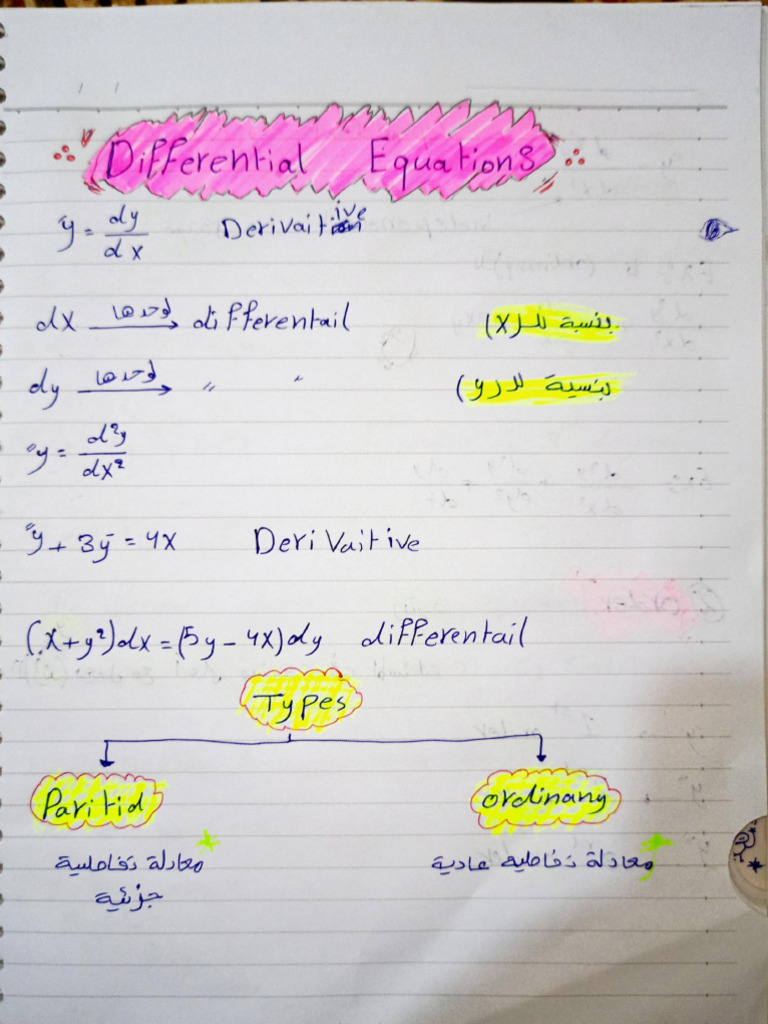 Differential Equations
ȳ = dy/dx Derivaitive
dx لوحدها → differentail بنسبة للـ (x)
dy لوحدها → " " بنسبة للـ (y)
"y = d²y/dx²
"y + 3ȳ = 4x DeriVaitive
(x+y²)dx = (5y - 4x)dy differentail
Types
Paritid ordinany
معادلة تفاضلية معادلة تفاضلية عادية
جزئية